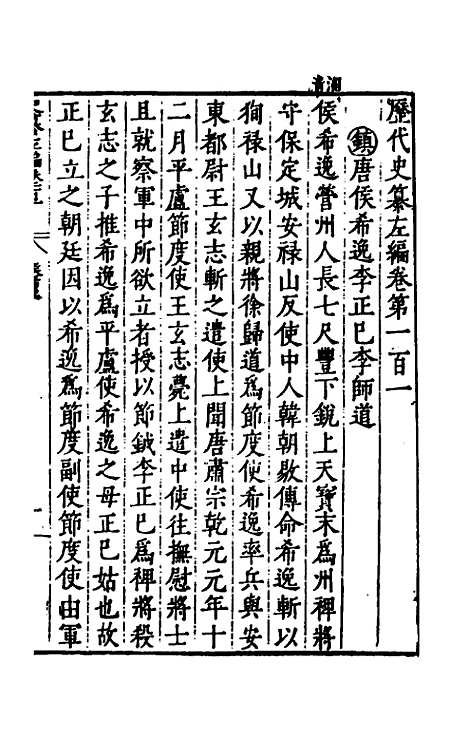 歷代史纂左編卷第一百一
鎮唐侯希逸李正巳李師道
侯希逸營州人長七尺豐下銳上天寶末為州裨將
守保定城安祿山反使中人韓朝敭傳命希逸斬以
狥祿山又以親將徐歸道為節度使希逸率兵與安
東都尉王玄志斬之遣使上聞唐肅宗乾元元年十
二月平盧節度使王玄志薨上遣中使往撫慰將士
且就察軍中所欲立者授以節鉞李正巳為裨將殺
玄志之子推希逸為平盧使希逸之母正巳姑也故
正巳立之朝廷因以希逸為節度副使節度使由軍